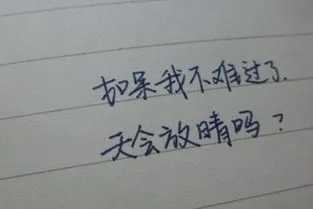 如果我不难过了.
天会放晴吗？